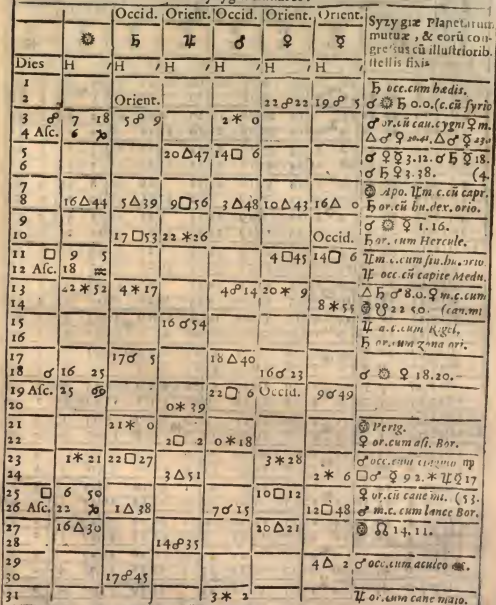 Occid. Orient. Occid. Orient. Orient. Syzygiæ Planetarum
☼ ♄ ♃ ♂ ♀ ☿ mutuæ, & eorũ con-
gressus cũ illustriorib.
Dies H ′ H ′ H ′ H ′ H ′ H ′ stellis fixis
1 ♄ occ.cum hædis.
2 Orient. 22☍22 19☍ 5 ♂ ☼ ♄ 0.0.(c.cũ syrio
3 ☍ 7 18 5☍ 9 2✶ 0 ♂ or.cũ cau.cygni ♀ m.
4 Asc. 6 ♑
5 20△47 14□ 6 ♂ ♀ ☿ 3.12. ♂ ♄ ☿ 18.
6 ♂ ♄ ♀ 3.38. (4.
7 Apo. ♃ m c.cũ capr.
8 16△44 5△39 9□56 3△48 10△43 16△ 0 ♄ or.cũ hu.dex.orio.
9 ☌ ☼ ♀ 1.16.
10 17□53 22✶26 Occid. ♄ or. cum Hercule.
11 □ 9 5 4□45 14□ 6
12 Asc. 18 ♒ ♃ occ.cũ capite Medu.
13 22✶52 4✶17 4☍14 20✶ 9 △ ♄ ♂ 8.0. ♀ m.c.cum
14 8✶55 22 50. (can.mi
15 16☍54 ♃ a.c.cum Rigel,
16 ♄ or.cum zona ori.
17 17☌ 5 18△40
18 ☌ 16 25 16☌23 ☌ ☼ ♀ 18.20.
19 Asc. 25 ♋ 22□ 6 Occid. 9☌49
20 0✶39
21 21✶ 0 Perig.
22 2□ 2 0✶18 ♀ or.cum asi. Bor.
23 1✶21 22□27 3✶28 ♂ occ.cum
24 3△51 2✶ 6 □ ♂ ☿ 9 2. ✶ ♃ ☿ 17
25 □ 6 50 10□12 ♀ or.cũ cane mi. (53.
26 Asc. 22 ♑ 1△38 7☌15 12□48 ♂ m.c.cum lance Bor.
27 16△30 20△21 ☊ 14.11.
28 14☍35
29 4△ 2 ♂ occ.cum aculeo
30 17☍45
31 3✶ 2 ♃ or.cum cane maio.